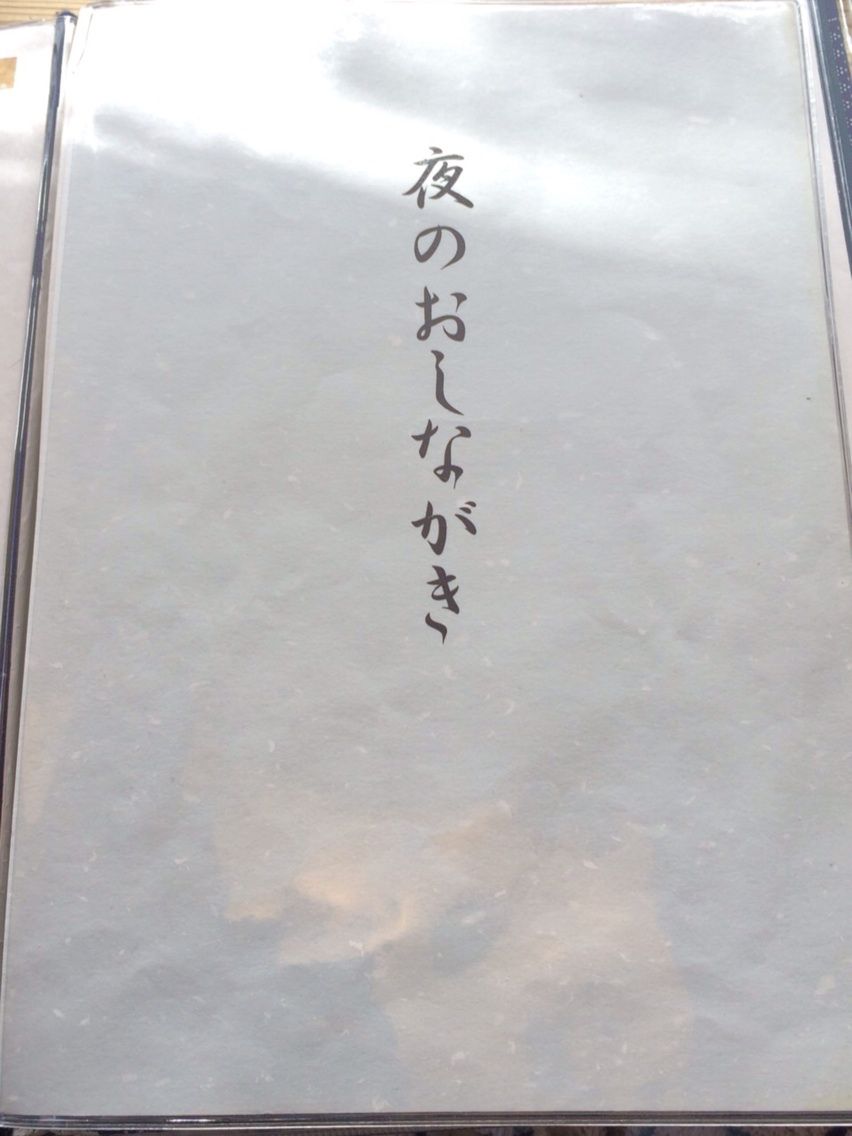 夜のおしながき